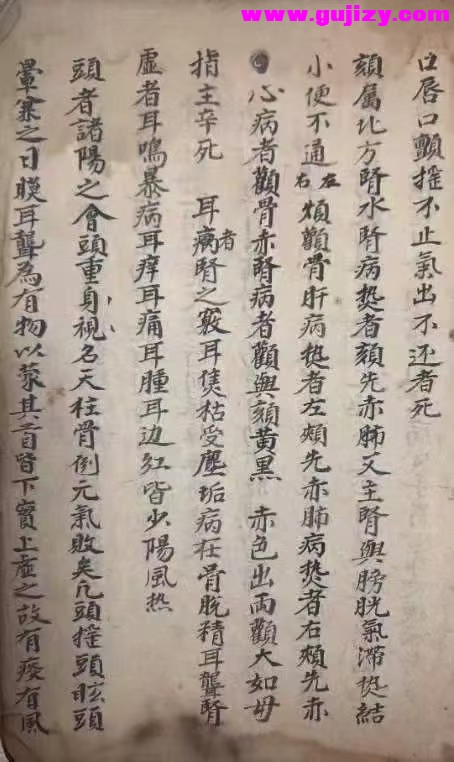 www.gujizy.com
口唇口顫摇不止氣出不还者死
頦屬北方腎水腎病热者頦先赤肺又主腎與膀胱氣滞热結
小便不通 左右頰顴骨肝病热者左頰先赤肺病热者右頰先赤
心病者顴骨赤腎病者顴與頦黄黑 赤色出両顴大如母
指主卒死 耳者腎之竅耳焦枯受塵垢病在骨脫精耳聾腎
虚者耳鳴暴病耳痒耳痛耳腫耳边红皆少陽風热
頭者諸陽之會頭重身視名天柱骨倒元氣敗矣凡頭摇頭眩頭
暈之目朦耳聾為有物以蒙其首皆下實上虚之故有痰有風